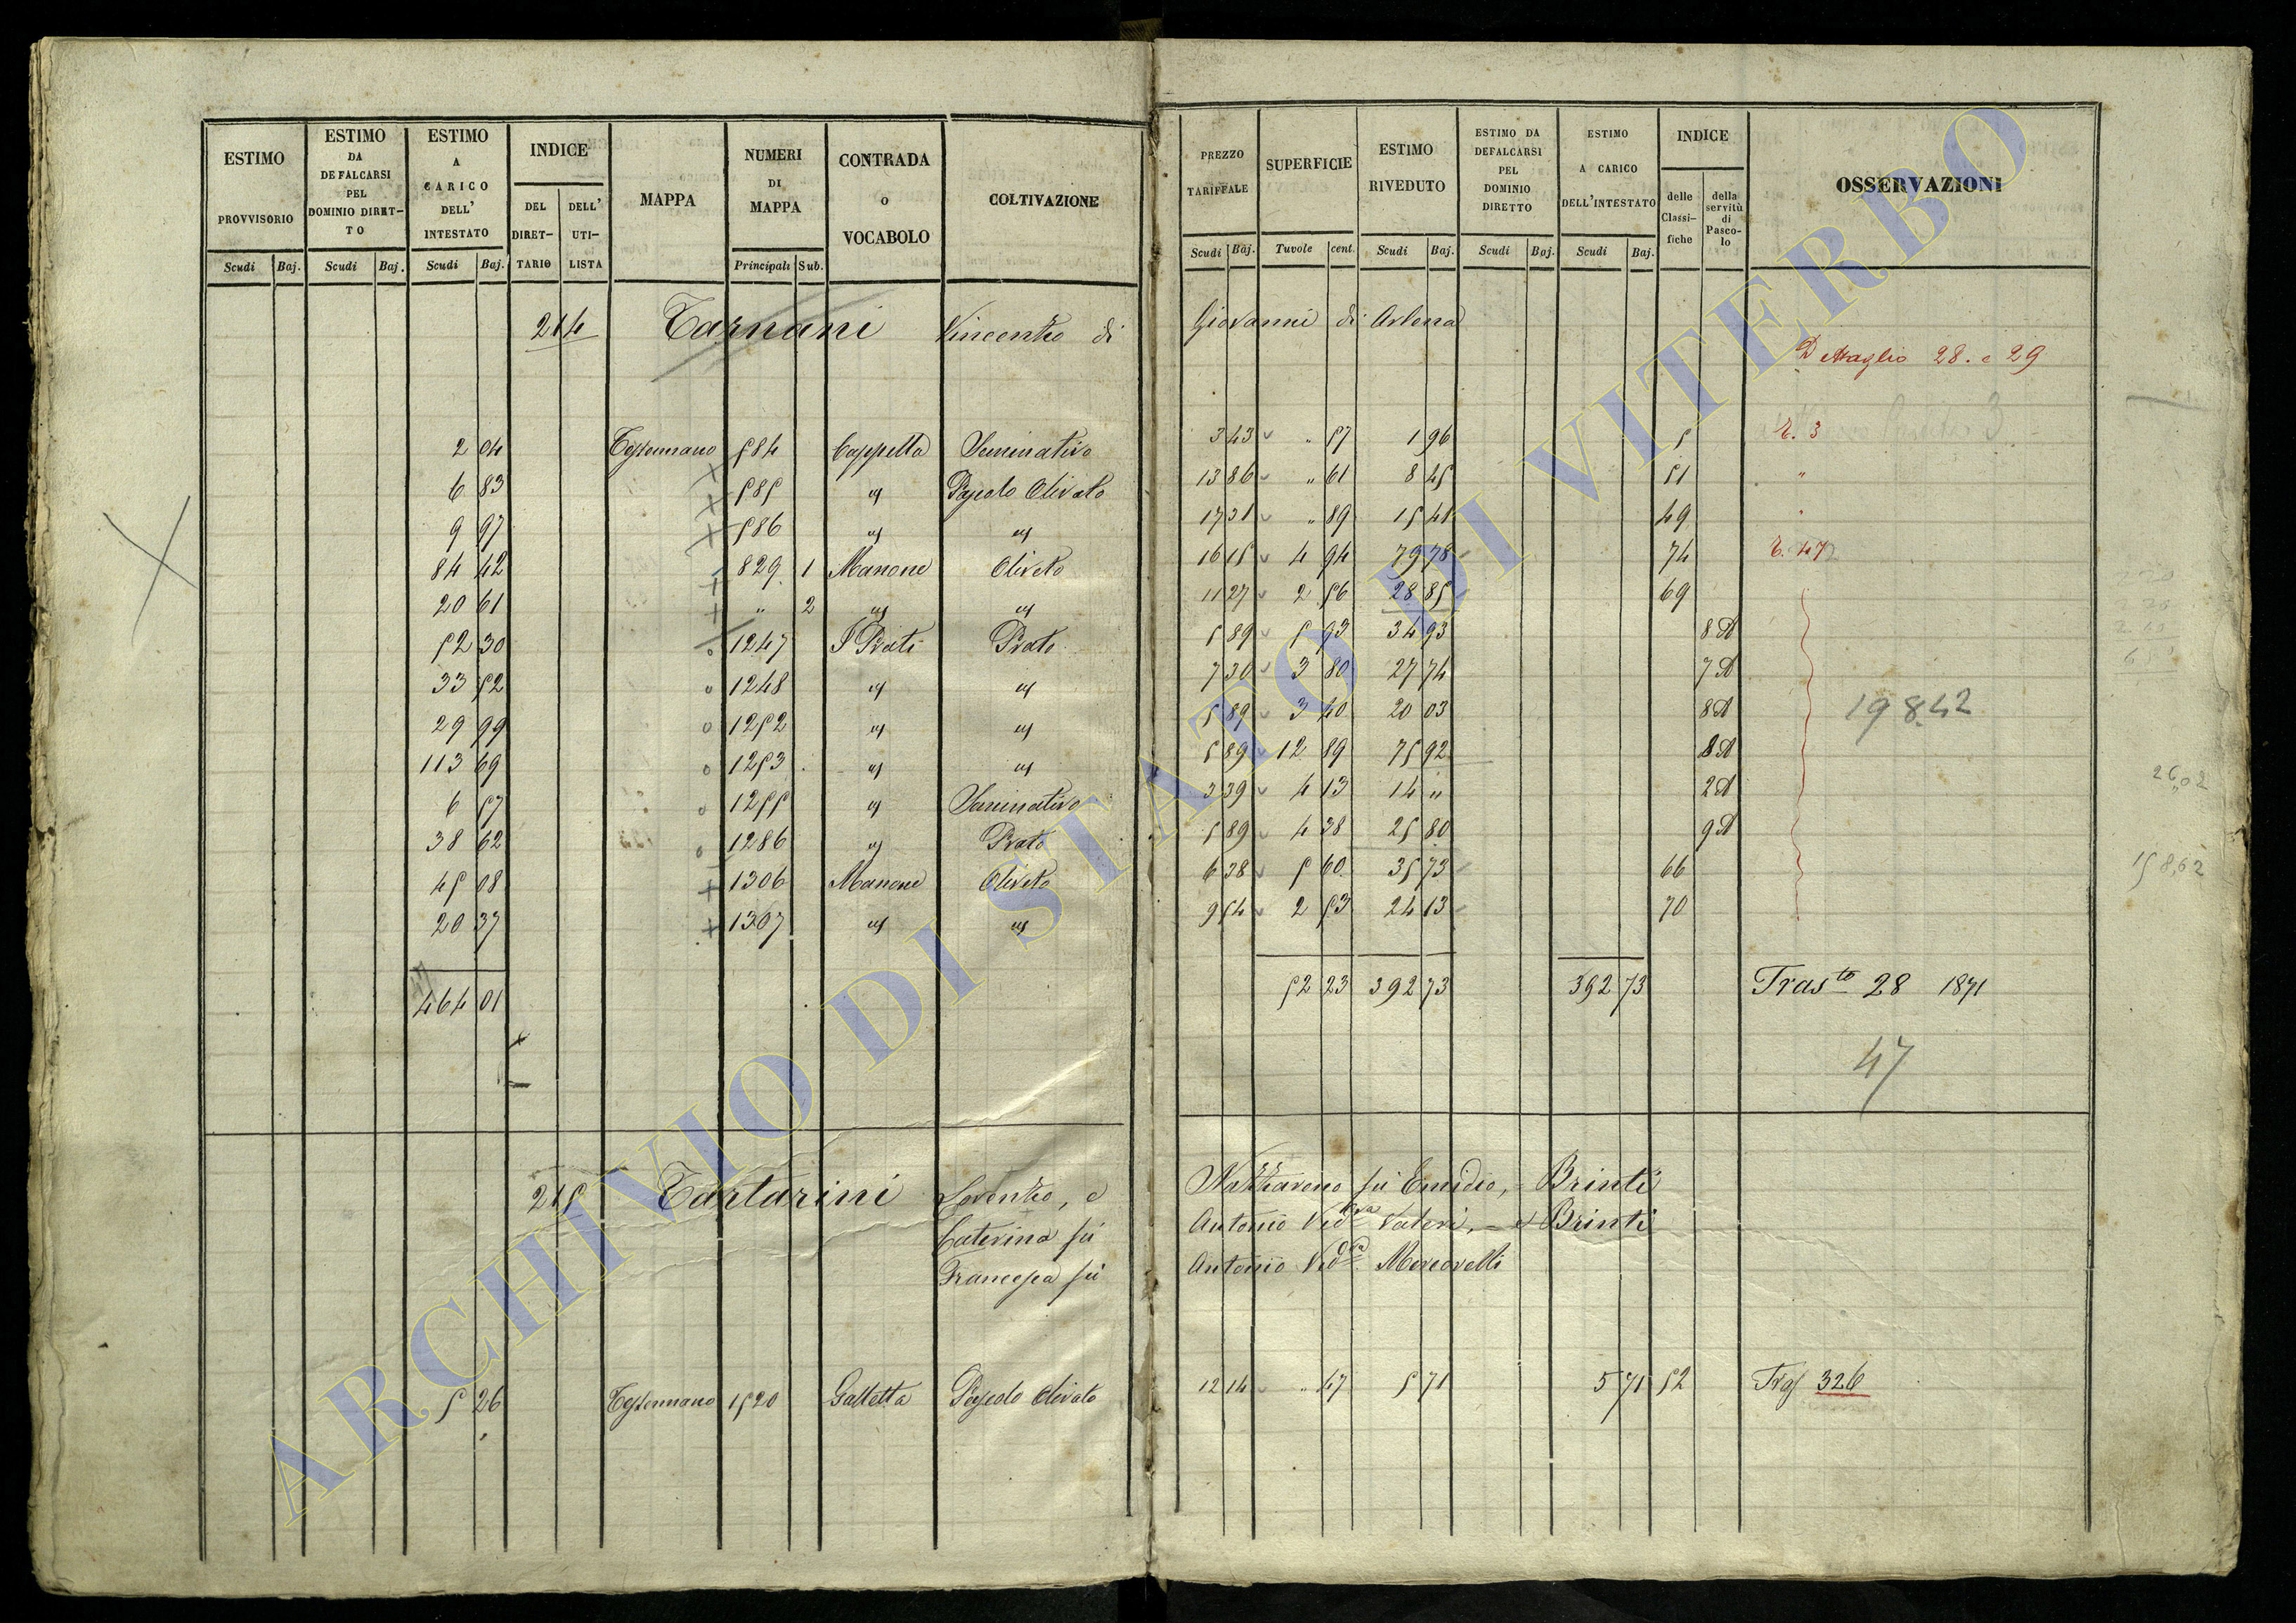 ESTIMO PROVVISORIO Scudi Baj.
ESTIMO DA DEFALCARSI PEL DOMINIO DIRETTO Scudi Baj.
ESTIMO A CARICO DELL' INTESTATO Scudi Baj.
INDICE DEL DIRETTARIO DELL' UTILISTA
MAPPA
NUMERI DI MAPPA Principali Sub.
CONTRADA o VOCABOLO
COLTIVAZIONE
PREZZO TARIFFALE Scudi Baj.
SUPERFICIE Tavole cent.
ESTIMO RIVEDUTO Scudi Baj.
ESTIMO DA DEFALCARSI PEL DOMINIO DIRETTO Scudi Baj.
ESTIMO A CARICO DELL'INTESTATO Scudi Baj.
INDICE delle Classifiche della servitù di Pascolo
OSSERVAZIONI
214 Tarnani Vincenzo di Giovanni di Arlena
Dettaglio 28. e 29
2 04 Tessennano 584 Cappella Seminativo 3 43 " 57 1 96 5 T. 3
6 83 585 " Pascolo Olivato 13 86 " 61 8 45 51 "
9 97 586 " " 17 31 " 89 15 41 49 "
84 42 829 1 Manone Oliveto 16 15 4 94 79 78 74 T. 47
20 61 " 2 " " 11 27 2 56 28 85 69
52 30 1247 I Prati Prato 5 89 5 93 34 93 8 A
33 52 1248 " " 7 30 3 80 27 74 7 A
29 99 1252 " " 5 89 3 40 20 03 8 A
198.42
113 69 1253 " " 5 89 12 89 75 92 8 A
6 57 1255 " Seminativo 3 39 4 13 14 " 2 A
38 62 1286 " Prato 5 89 4 38 25 80 9 A
45 08 1306 Manone Oliveto 6 38 5 60 35 73 66
20 37 1307 " " 9 54 2 53 24 13 70
464 01 52 23 392 73 392 73 Trasto 28 1871
47
215 Tartarini Lorenzo, e Nazzareno fù Emidio, - Brinti
Caterina fù Antonio Ved.va Valeri, - e Brinti
Francesca fù Antonio Ved.va Mercorelli
5 26 Tessennano 1520 Galletta Pascolo Olivato 12 14 " 47 5 71 5 71 52 Tras 326
26,02
158,62
ARCHIVIO DI STATO DI VITERBO